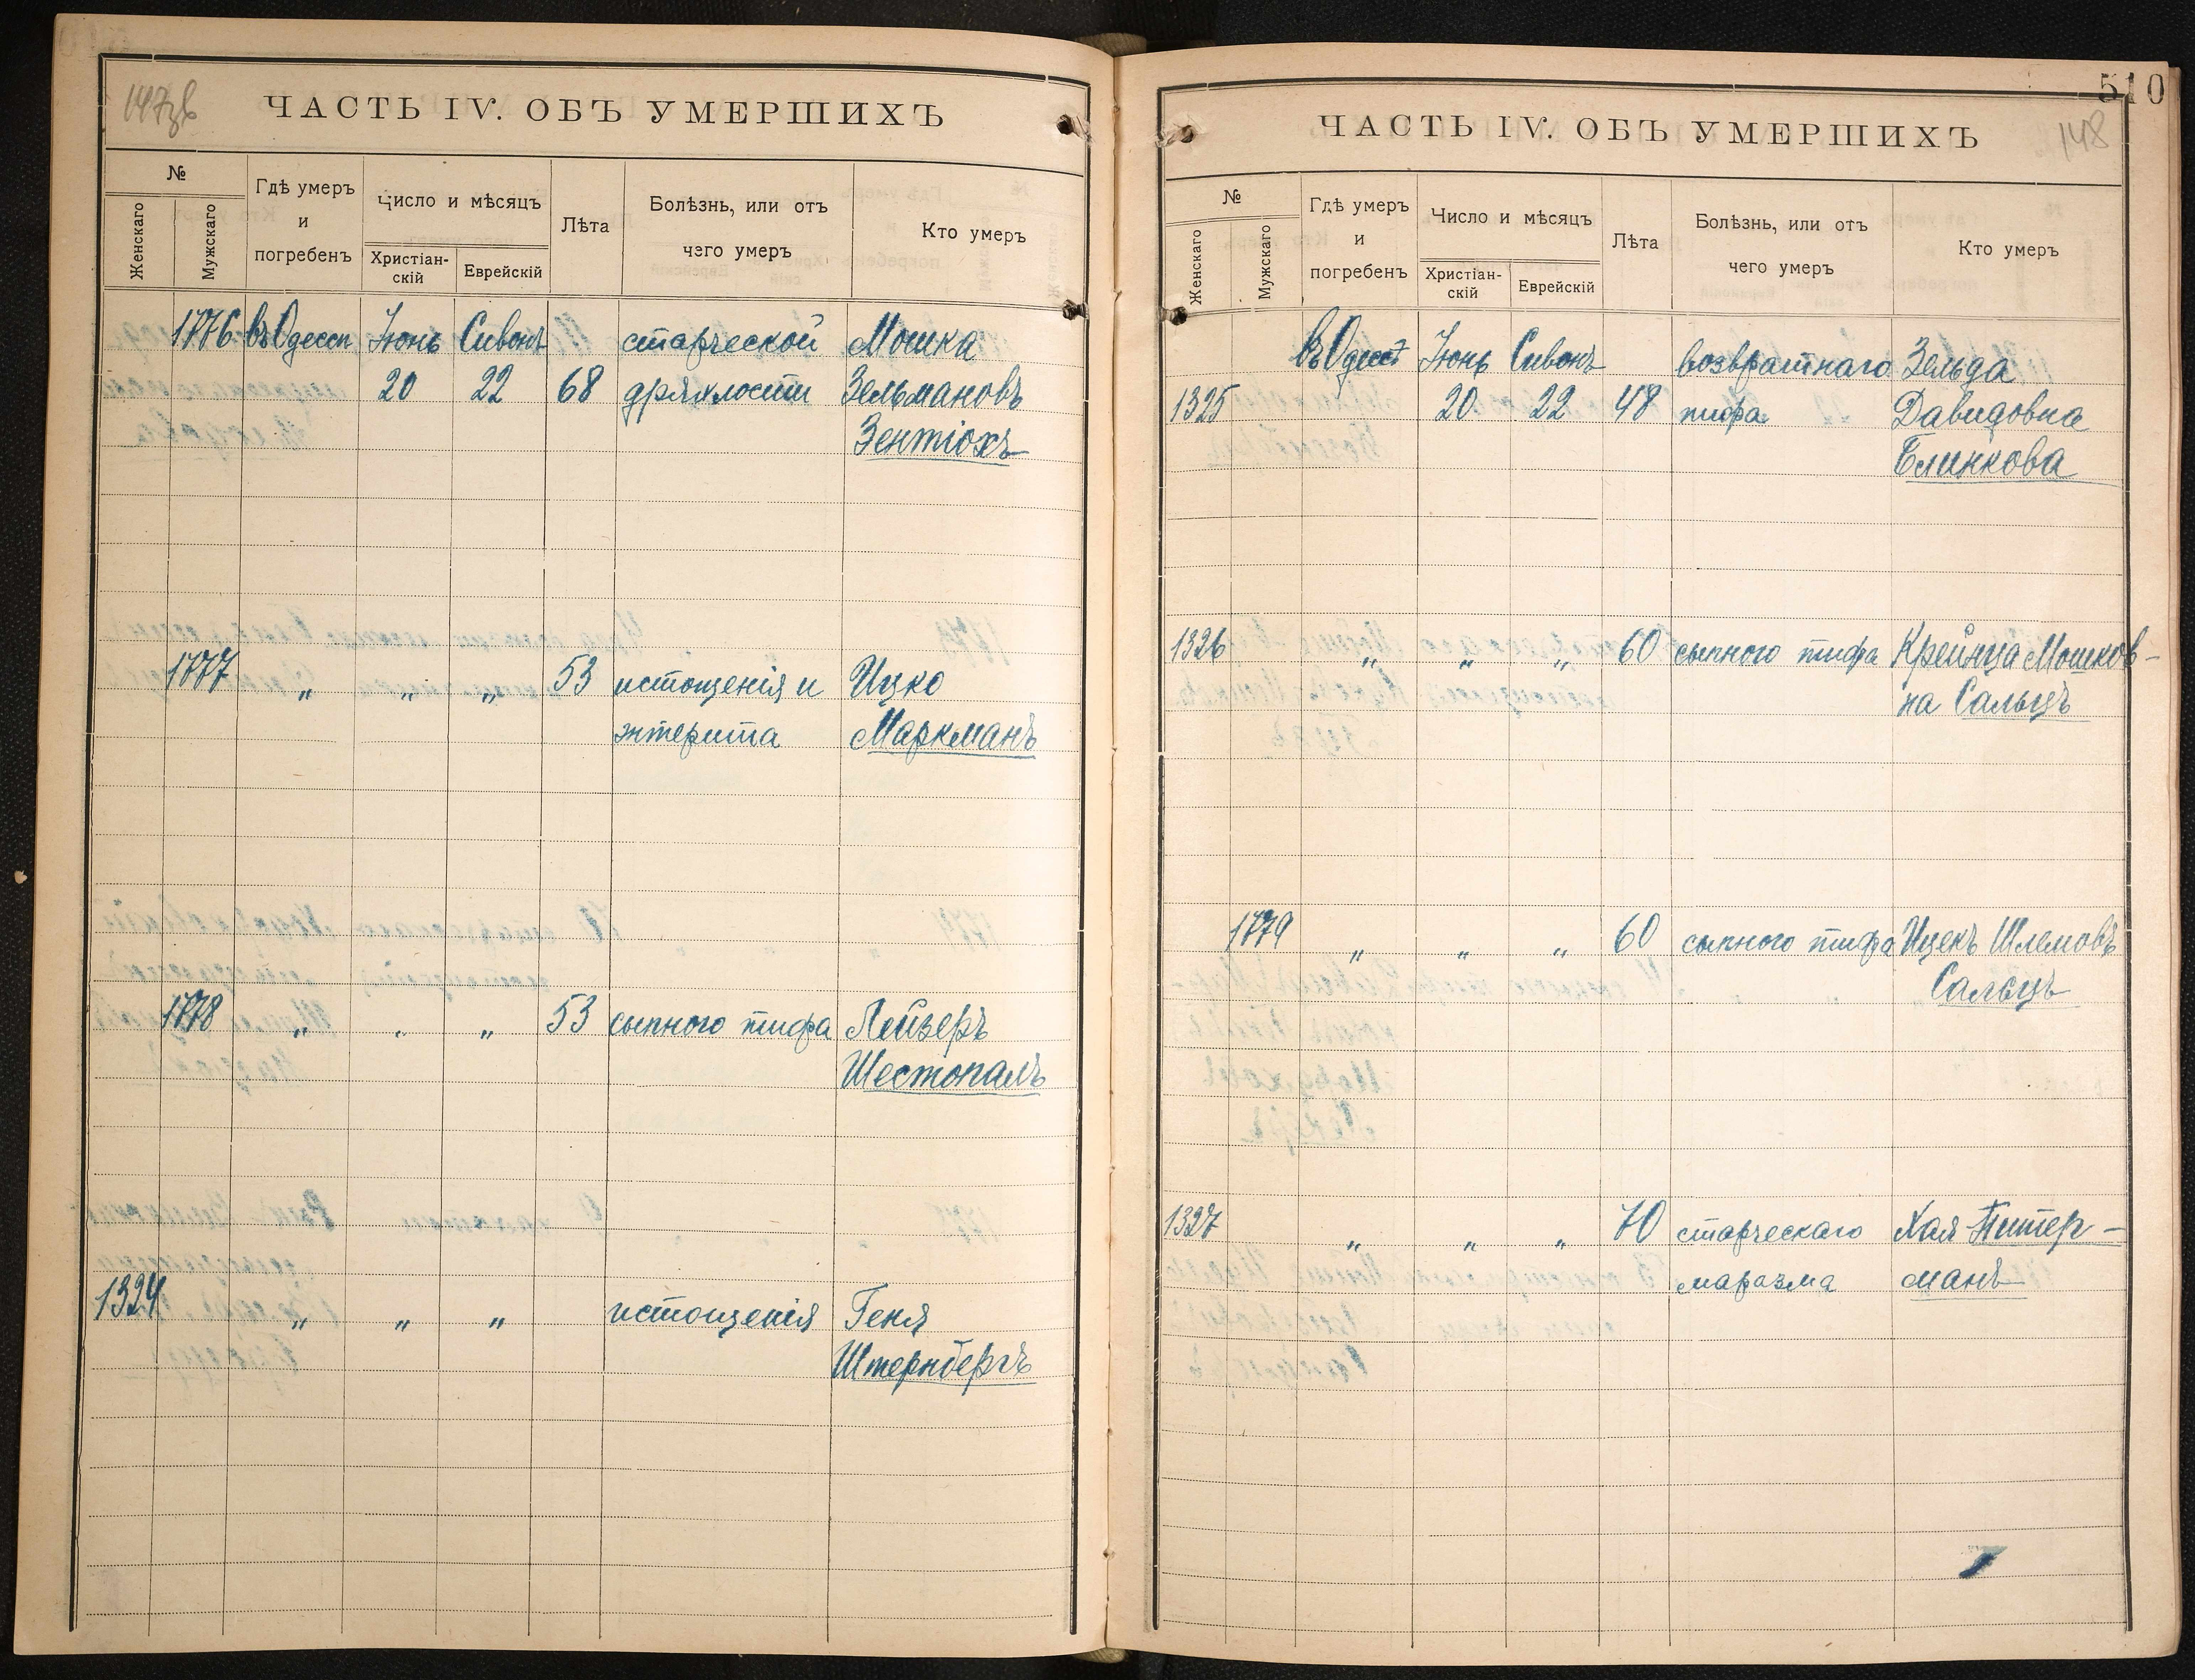 147об
ЧАСТЬ IV. ОБЪ УМЕРШИХЪ
№
Женскаго
Мужскаго
Гдѣ умеръ
и
погребенъ
Число и мѣсяцъ
Христіан-
скій
Еврейскій
Лѣта
Болѣзнь, или отъ
чего умеръ
Кто умеръ
1776 въ Одессѣ Іюнь Сивонъ старческой Мошка
20 22 68 дряхлости Зельмановъ
Зентіохъ
1777 „ „ „ 53 истощенія и Ицко
энтерита Маркманъ
1778 „ „ „ 53 сыпного тифа Лейзеръ
Шестопалъ
1324 „ „ „ истощенія Геня
Штернбергъ
510
148
ЧАСТЬ IV. ОБЪ УМЕРШИХЪ
№
Женскаго
Мужскаго
Гдѣ умеръ
и
погребенъ
Число и мѣсяцъ
Христіан-
скій
Еврейскій
Лѣта
Болѣзнь, или отъ
чего умеръ
Кто умеръ
въ Одессѣ Іюнь Сивонъ возвратнаго Зельда
1325 20 22 48 тифа Давидовна
Блинкова
1326 „ „ „ 60 сыпного тифа Крейнца Мошков-
на Сальцъ
1779 „ „ „ 60 сыпного тифа Ицекъ Шлемовъ
Сальцъ
1327 „ „ „ 70 старческаго Хая Питер-
маразма манъ